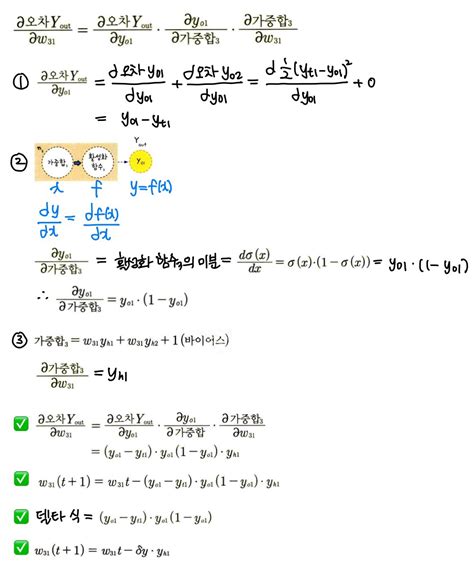 ∂오차Y_out/∂w₃₁ = ∂오차Y_out/∂y_o1 · ∂y_o1/∂가중합₃ · ∂가중합₃/∂w₃₁
① ∂오차Y_out/∂y_o1 = d오차y_o1/dy_o1 + d오차y_o2/dy_o1 = d½(y_t1-y_o1)²/dy_o1 + 0
= y_o1 - y_t1
Y_out
② 가중합₃ 활성화 함수₃ Y_o1
x f y=f(x)
dy/dx = df(x)/dx
∂y_o1/∂가중합₃ = 활성화 함수₃의 미분 = dσ(x)/dx = σ(x)·(1-σ(x)) = y_o1·(1-y_o1)
∴ ∂y_o1/∂가중합₃ = y_o1·(1-y_o1)
③ 가중합₃ = w₃₁y_h1 + w₃₁y_h2 + 1(바이어스)
∂가중합₃/∂w₃₁ = y_h1
✅ ∂오차Y_out/∂w₃₁ = ∂오차Y_out/∂y_o1 · ∂y_o1/∂가중합 · ∂가중합₃/∂w₃₁
= (y_o1 - y_t1)·y_o1(1-y_o1)·y_h1
✅ w₃₁(t+1) = w₃₁t - (y_o1 - y_t1)·y_o1(1-y_o1)·y_h1
✅ 델타 식 = (y_o1 - y_t1)·y_o1(1-y_o1)
✅ w₃₁(t+1) = w₃₁t - δy·y_h1